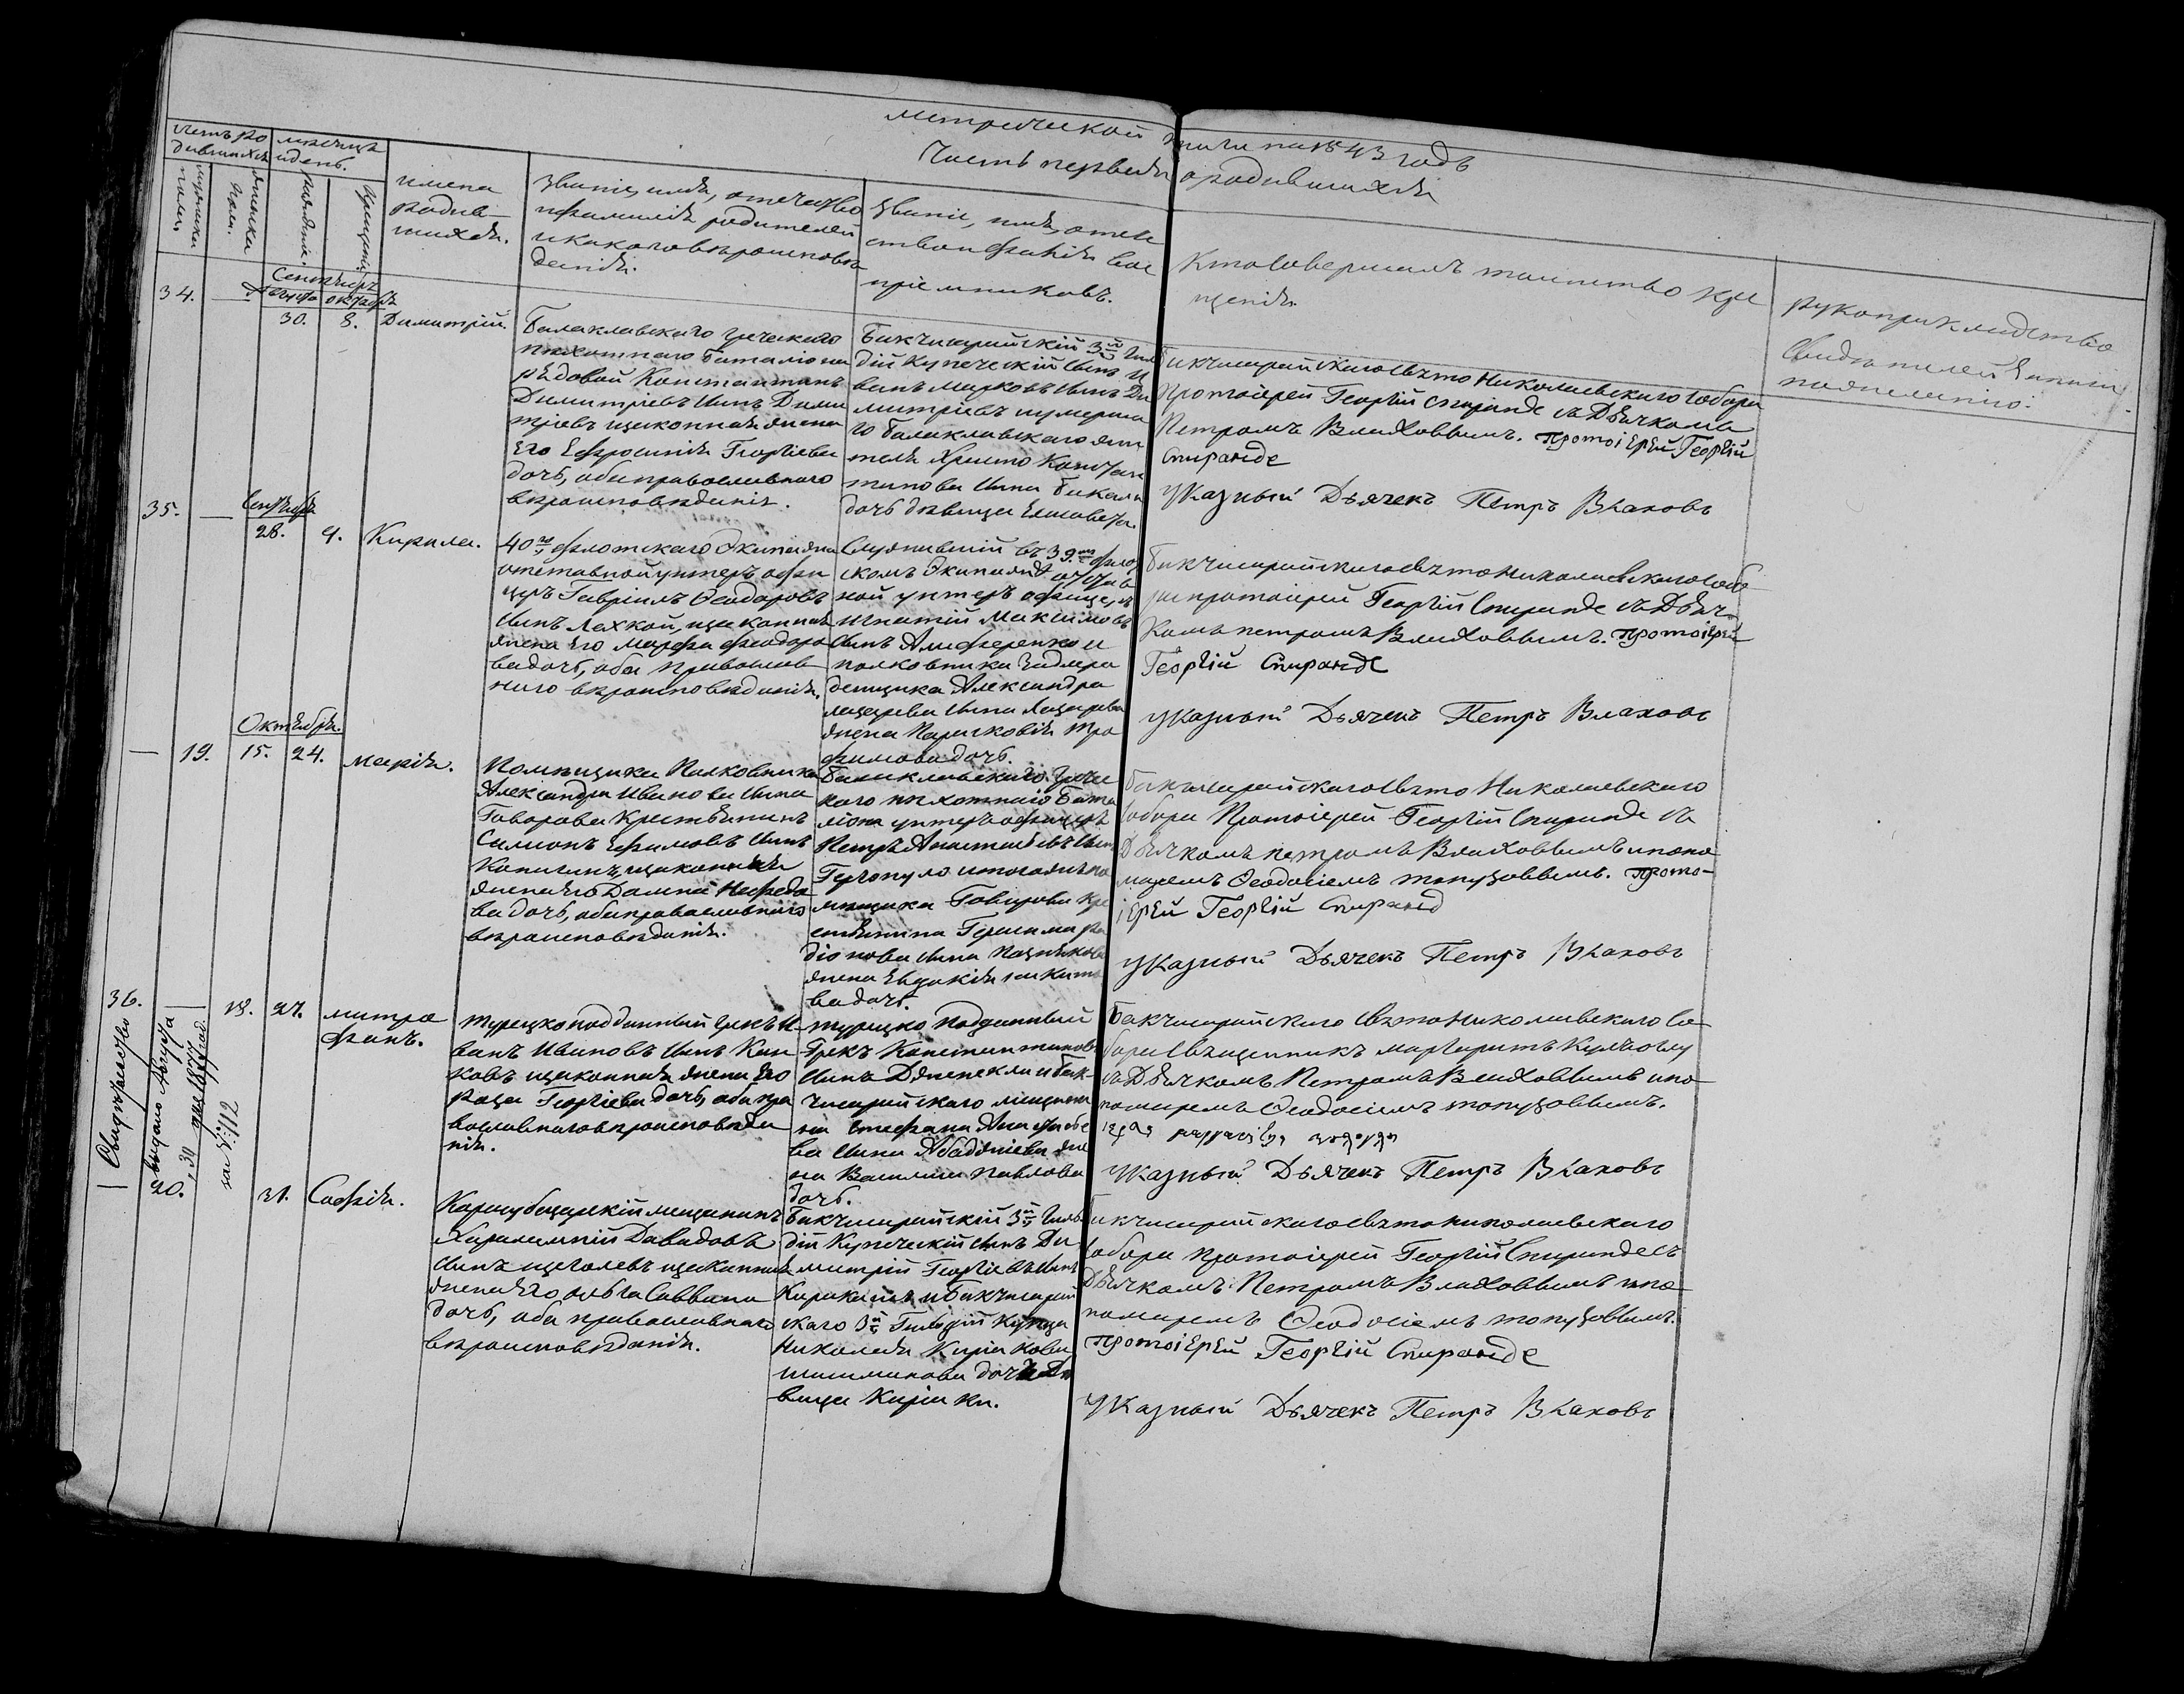 метрической книги на 1843 годъ
Часть первая о родившихся
Счетъ ро
дившихся
мѣсяцъ
и день.
мужеска
полу
женска
полу.
рожденія.
крещенія
имена
родив-
шихся.
Званіе, имя, отечество
и фамилія родителей
и какого вѣроисповѣ
данія.
Званіе, имя, отече
ство и фамилія вос
пріемниковъ.
Кто совершалъ таинство кре
щенія.
рукоприкладство
свидѣтелей записи
по желанію.
34.
—
Сентябрь
октябрь
30.
8.
Димитрій.
Балаклавскаго греческаго
пѣхотнаго баталіона
рядовой Константинъ
Димитріевъ сынъ Дими
тріевъ и законная жена
его Ефросинія Георгіева
дочь, оба православнаго
вѣроисповѣданія.
Бакчисарайскій 3й гиль
дій купеческій сынъ И
ванъ Марковъ сынъ Ди
митріевъ и умерша
го балаклавскаго жи
теля Христо Констан
тинова сына Бикали
дочь дѣвица Елисавета.
Бакчисарайскаго свято Николаевскаго собора
Протоіерей Георгій Спиранде съ Дьячкомъ
Петромъ Влаховымъ. Протоіерей Георгій
Спиранде
Указный Дьячекъ Петръ Влаховъ
35.
—
Сентябрь
28.
9.
Кирила.
40го флотскаго Экипажа
отставной унтеръ офи
церъ Гавріилъ Феодоровъ
сынъ Лахкой, и законная
жена его Марфа Феодоро
ва дочь, оба православ
наго вѣроисповѣданія.
Служившій въ 39мъ флот
скомъ Экипажѣ отстав
ной унтеръ офицеръ
Игнатій Максимовъ
сынъ Алиференко и
полковника
денщика Александра
Лазарева сына Лазарева
жена Парасковія Тро
фимова дочь.
Бакчисарайскаго свято Николаевскаго собо
ра протоіерей Георгій Спиранде съ Дьяч
комъ Петромъ Влаховымъ. Протоіерей
Георгій Спиранде
Указный Дьячекъ Петръ Влаховъ
Октября.
—
19.
15.
24.
Марія.
Помѣщика Полковника
Александра Иванова сына
Говорова крестьянинъ
Симіонъ Ефимовъ сынъ
и законная
жена его Домна Нефедо
ва дочь, оба православнаго
вѣроисповѣданія.
Балаклавскаго Грече
каго пѣхотнаго Бата
ліона унтеръ офицеръ
Петръ Анастасьевъ сынъ
и того же по
мѣщика Говорова кре
стьянина Герасима Ро
діонова сына
жена Евдокія Никити
ва дочь.
Бакчисарайскаго свято Николаевскаго
собора Протоіерей Георгій Спиранде съ
Дьячкомъ Петромъ Влаховымъ и поно
маремъ Феодосіемъ Топузовымъ. Прото-
іерей Георгій Спиранд
Указный Дьячекъ Петръ Влаховъ
36.
—
18.
27.
Митро
фанъ.
Турецкоподданный грекъ И
ванъ Ивановъ сынъ Кан
ковъ и законная жена его
Роза Георгіева дочь, оба пра
вославнаго вѣроисповѣда
нія.
Турецко подданный
Грекъ Константиновъ
сынъ и Бак-
чисарайскаго мѣщани
на Стефана Анастасье
ва сына Абаджіева же
на Василиса Павлова
дочь.
Бакчисарайскаго свято Николаевскаго Со-
бора Священникъ Маргаритъ
съ Дьячкомъ Петромъ Влаховымъ и по-
номаремъ Феодосіемъ Топузовымъ.
Указный Дьячекъ Петръ Влаховъ
Свидѣтельство
выдано Августа
30 дня 1877 год.
за №112
—
20.
31.
Софія.
Карасубазарскій мѣщанинъ
Харалампій Давидовъ
сынъ Щеголевъ и законная
жена его Ольга Саввина
дочь, оба православнаго
вѣроисповѣданія.
Бакчисарайскій 3й гиль
дій Купеческій сынъ Ди
митрій Георгіевъ сынъ
и Бакчисарай
скаго 3й Гильдій купца
Николая Киріакова
Шишманова дочь дѣ
вица Киріаки.
Бакчисарайскаго свято Николаевскаго
собора Протоіерей Георгій Спиранде съ
Дьячкомъ Петромъ Влаховымъ и по
номаремъ Феодосіемъ Топузовымъ.
Протоіерей Георгій Спиранде
Указный Дьячекъ Петръ Влаховъ